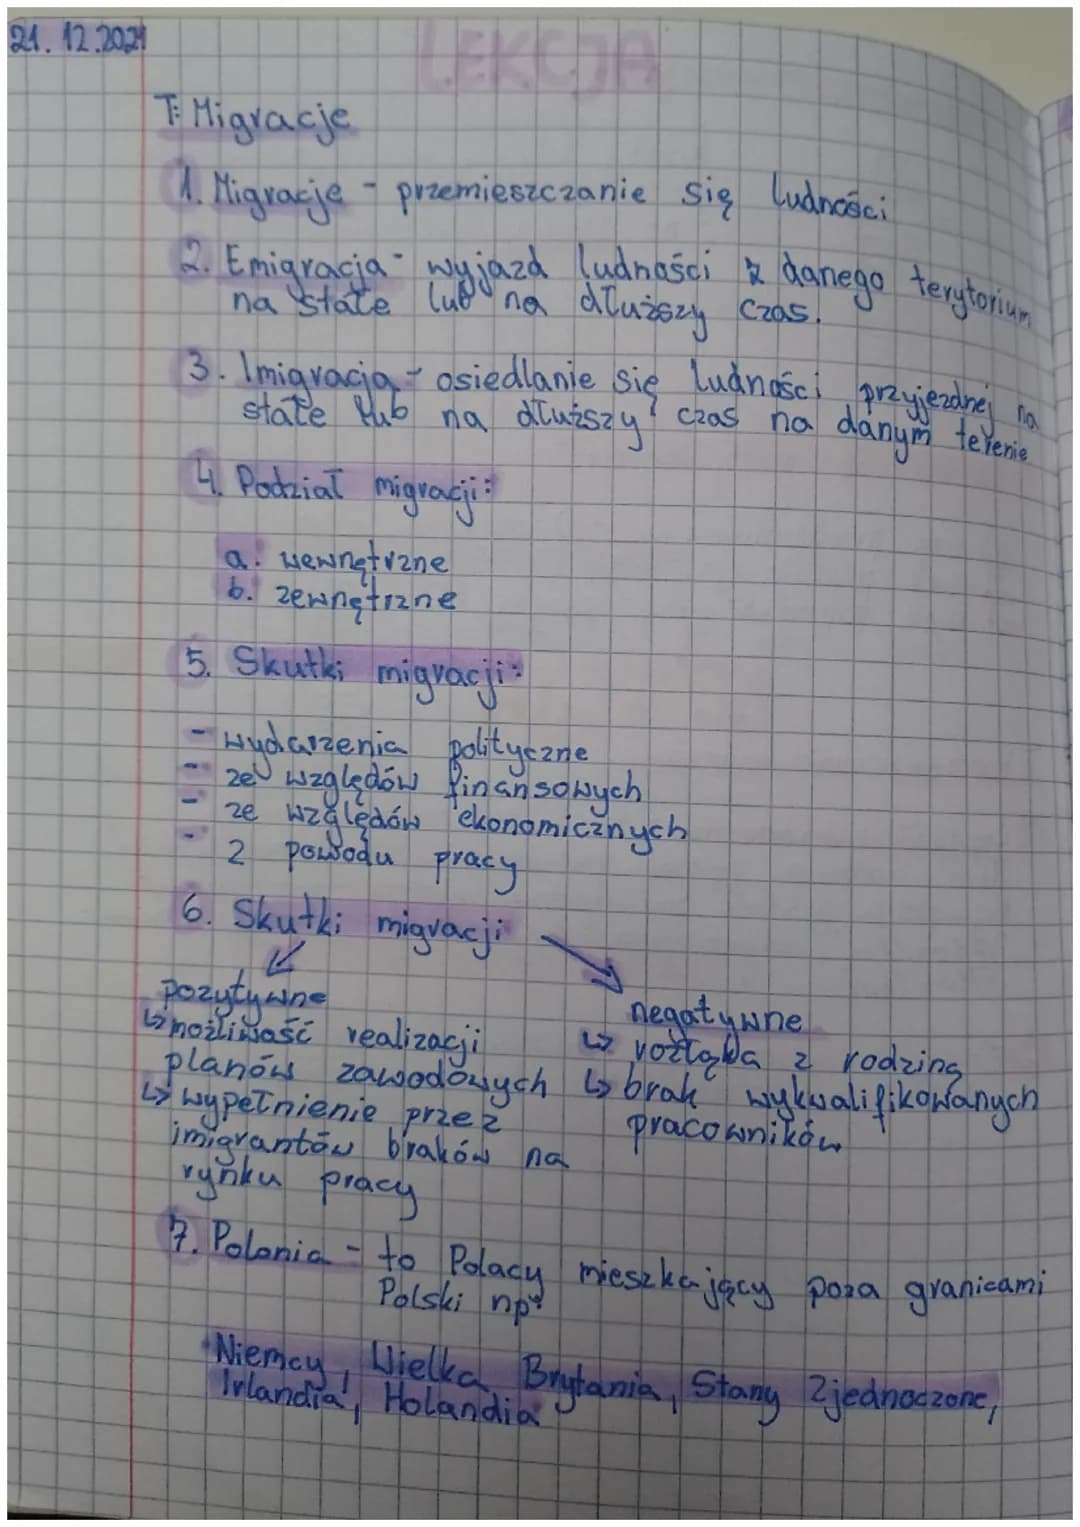 21.12.2021
LEKCJA
T: Migracje
1. Migracje - przemieszczanie się ludności
2. Emigracja - wyjazd ludności z danego terytorium
na stałe lub na dłuższy czas.
3. Imigracja - osiedlanie się ludności przyjezdnej na
stałe lub na dłuższy czas na danym terenie
4. Podział migracji:
a. wewnętrzne
b. zewnętrzne
5. Skutki migracji:
- wydarzenia polityczne
- ze względów finansowych
- ze względów ekonomicznych
- z powodu pracy
6. Skutki migracji
pozytywne
negatywne
↳ możliwość realizacji
planów zawodowych
↳ wypełnienie przez
imigrantów braków na
rynku pracy
↳ rozłąka z rodziną
↳ brak wykwalifikowanych
pracowników
7. Polonia - to Polacy mieszkający poza granicami
Polski np:
Niemcy, Wielka Brytania, Stany Zjednoczone,
Irlandia, Holandia